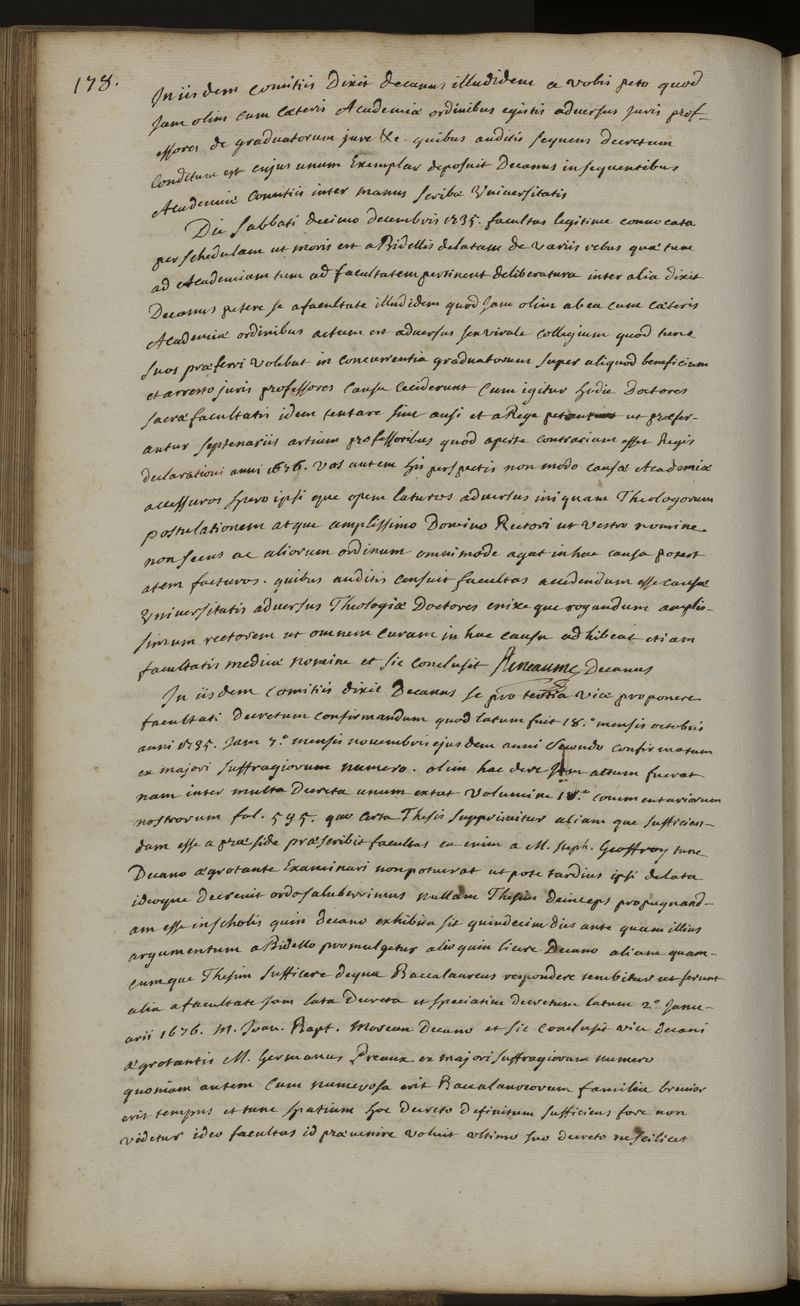 178.
In iisdem Comitiis Dixit Decanus illud idem a vobis peto quod
Jam olim cum Cæteris Academiæ ordinibus egistis adversus Juris prof-
essores de graduatorum jure &c. quibus auditis sequens Decretum
Conditum est cujus unum Exemplar deposuit Decanus insequentibus
Academiæ Comitiis inter manus scribæ Universitatis
Die Sabbati decimo decembris 1735. facultas legitime convocata
per schedulam ut moris est a Bidellis delatam de variis rebus quæ tum
ad Academiam tum ad facultatem pertinent deliberatura inter alia dixit
Decanus petere se a facultate illud idem quod Jam olim ab ea cum cæteris
Academiæ ordinibus actum est adversus sexvirale collegium quod tunc
suos præferri volebat in concurrentia graduatorum super aliquod beneficium
et arresto juris professores causa ceciderunt Cum igitur hodie Doctores
sacræ facultatis idem tentare sint ausi et a Rege petant ut præfer-
antur septenariis artium professoribus quod aperte contrarium esset Regis
declarationi anni 1676. vos autem his perspectis non modo causæ Academiæ
accessuros spero ipsi que opem laturos adversus iniquam Theologorum
postulationem atque amplissimo Domino Rectori ut vestro nomine
non secus ac aliorum ordinum omnimode agat in hac causa potest
atem facturos. quibus auditis censuit facultas accedendum esse causæ
Universitatis adversus Theologiæ Doctores enixe que rogandum amplis-
simum rectorem ut omnem curam in hac causa adhibeat etiam
facultatis medicæ nomine et sic conclusit Reneaume Decanus
In iisdem Comitiis dixit Decanus se pro tertia vice proponere
facultati Decretum confirmandum quod latum fuit 18.o mensis octobris
anni 1735. Jam 7.o mensis novembris ejusdem anni secundo confirmatum
ex majori suffragiorum numero. olim hac de re Jam actum fuerat
nam inter multa Decreta unum extat volumine 18.o commentariorum
nostrorum fol. 595. quo certa Thesis supprimitur aliam que sufficien-
dam esse a præside præscribit facultas ea enim a M. Steph. Geoffroy tunc
Decano ægrotante Examinari non potuerat ut pote tardius ipsi delata
ideoque decrevit ordo saluberrimus nullam Thesim deinceps propugnand-
am esse in scholis quin decano exhibita sit quindecim dies ante quam illius
argumentum a Bidello promulgetur alioquin licere Decano aliam quam-
cumque Thesim sufficere de qua Baccalaureus respondere tenebitur ut ferunt
alia a facultate Jam lata Decreta et speciatim decretum latum 2.o Janu-
arii 1676. M. Joan. Bapt. Moreau Decano et sic conclusit vice decani
ægrotantis M. Germanus Preaux ex majori suffragiorum numero
quoniam autem cum numerosa erit Baccalaureorum familia brevior
erit tempus et tunc spatium hoc decreto definitum sufficiens fore non
videtur ideo facultas id prævenire voluit ultimo suo decreto ne scilicet